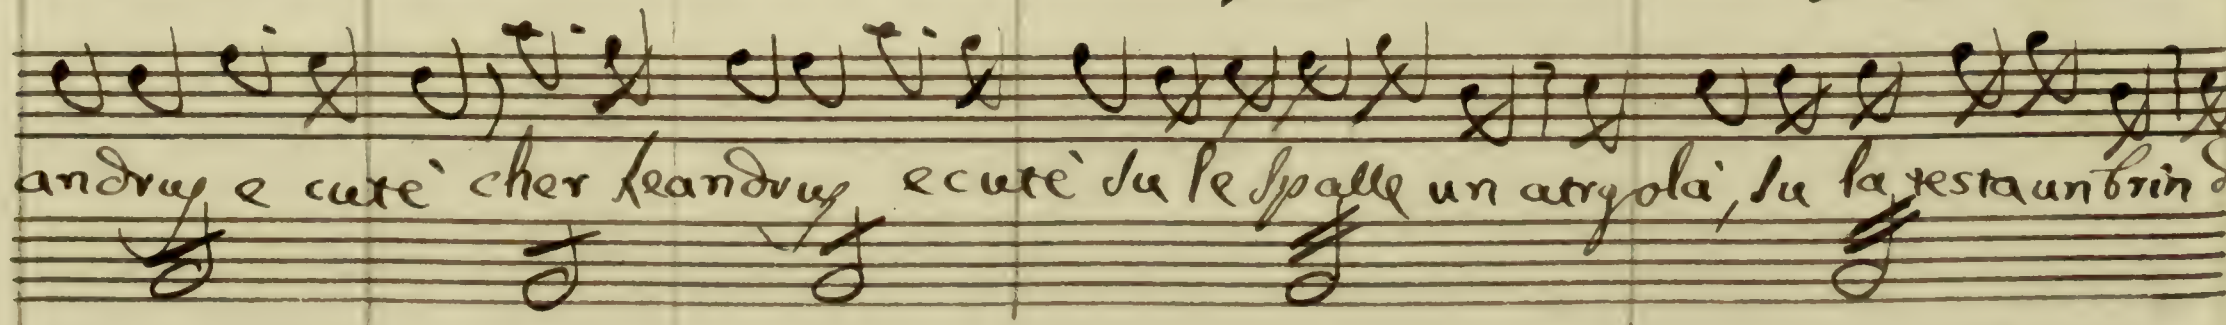 andrus e cutè cher Leandrus ecutè su le spalle un airgolà, su la testa un brin d